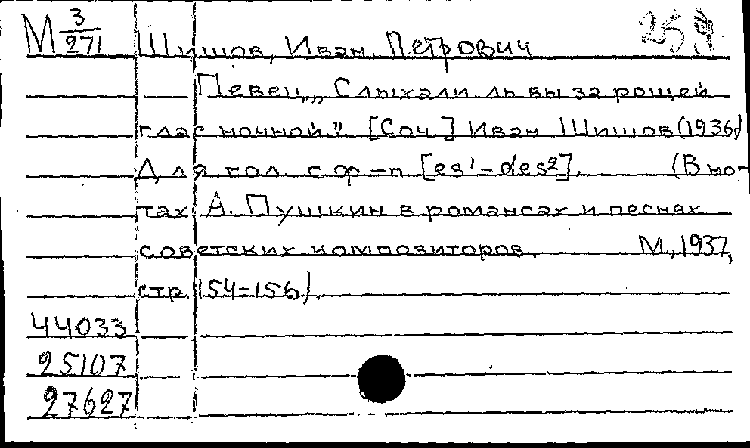 М 3/271 Шишов, Иван Петрович 259
Певец „Слыхали ль вы за рощей
глас ночной". [Соч.] Иван Шишов (1936)
Для гол. с ф-п [es¹-des²]. (В но-
тах: А. Пушкин в романсах и песнях
советских композиторов. М., 1937,
стр. 154-156).
44033
25107
27627